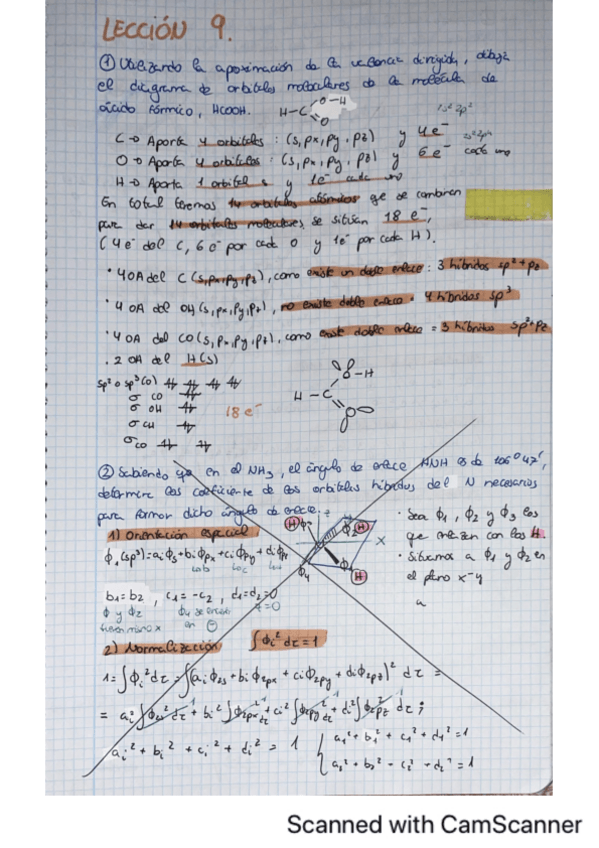 LECCIÓN 9.
① Utilizando la aproximación de la valencia dirigida, dibuja
el diagrama de orbitales moleculares de la molécula de
ácido fórmico, HCOOH. H-C O-H O
C → Aporta 4 orbitales : (s, px, py, pz) y 4e⁻
O → Aporta 4 orbitales : (s, px, py, pz) y 6e⁻ cada uno
H → Aporta 1 orbital s y 1e⁻ cada uno
En total tenemos 14 orbitales atómicos que se combinan
para dar 14 orbitales moleculares, se sitúan 18 e⁻,
(4e⁻ del C, 6e⁻ por cada O y 1e⁻ por cada H).
· 4 OA del C (s, px, py, pz), como existe un doble enlace : 3 híbridos sp² + pz
· 4 OA del OH (s, px, py, pz), no existe doble enlace = 4 híbridos sp³
· 4 OA del CO (s, px, py, pz), como existe doble enlace = 3 híbridos sp² + pz
. 2 OA del H(s)
sp² o sp³ (O)
σ CO
σ OH 18 e⁻
σ CH
σ CO
H - C O - H O
② Sabiendo que en el NH₃, el ángulo de enlace HNH es de 106°47',
determine los coeficiente de los orbitales híbridos del N necesarios
para formar dicho ángulo de enlace.
1) Orientación espacial
· Sea Φ₁, Φ₂ y Φ₃ los
que enlazan con los H.
ϕᵢ (sp³) = aᵢϕs + bᵢϕpx + cᵢϕpy + dᵢϕpz
· Situamos a Φ₁ y Φ₂ en
el plano x-y
b₁ = b₂ , c₁ = -c₂ , d₁ = d₂ = 0
2) Normalización ∫Φᵢ² dτ = 1
1 = ∫ϕᵢ² dτ = ∫(aᵢ ϕ₂s + bᵢ ϕ₂px + cᵢ ϕ₂py + dᵢ ϕ₂pz)² dτ =
= aᵢ² ∫ϕ₂s² dτ + bᵢ² ∫ϕ₂px² dτ + cᵢ² ∫ϕ₂py² dτ + dᵢ² ∫ϕ₂pz² dτ ;
aᵢ² + bᵢ² + cᵢ² + dᵢ² = 1 { a₁² + b₁² + c₁² + d₁² = 1
Scanned with CamScanner